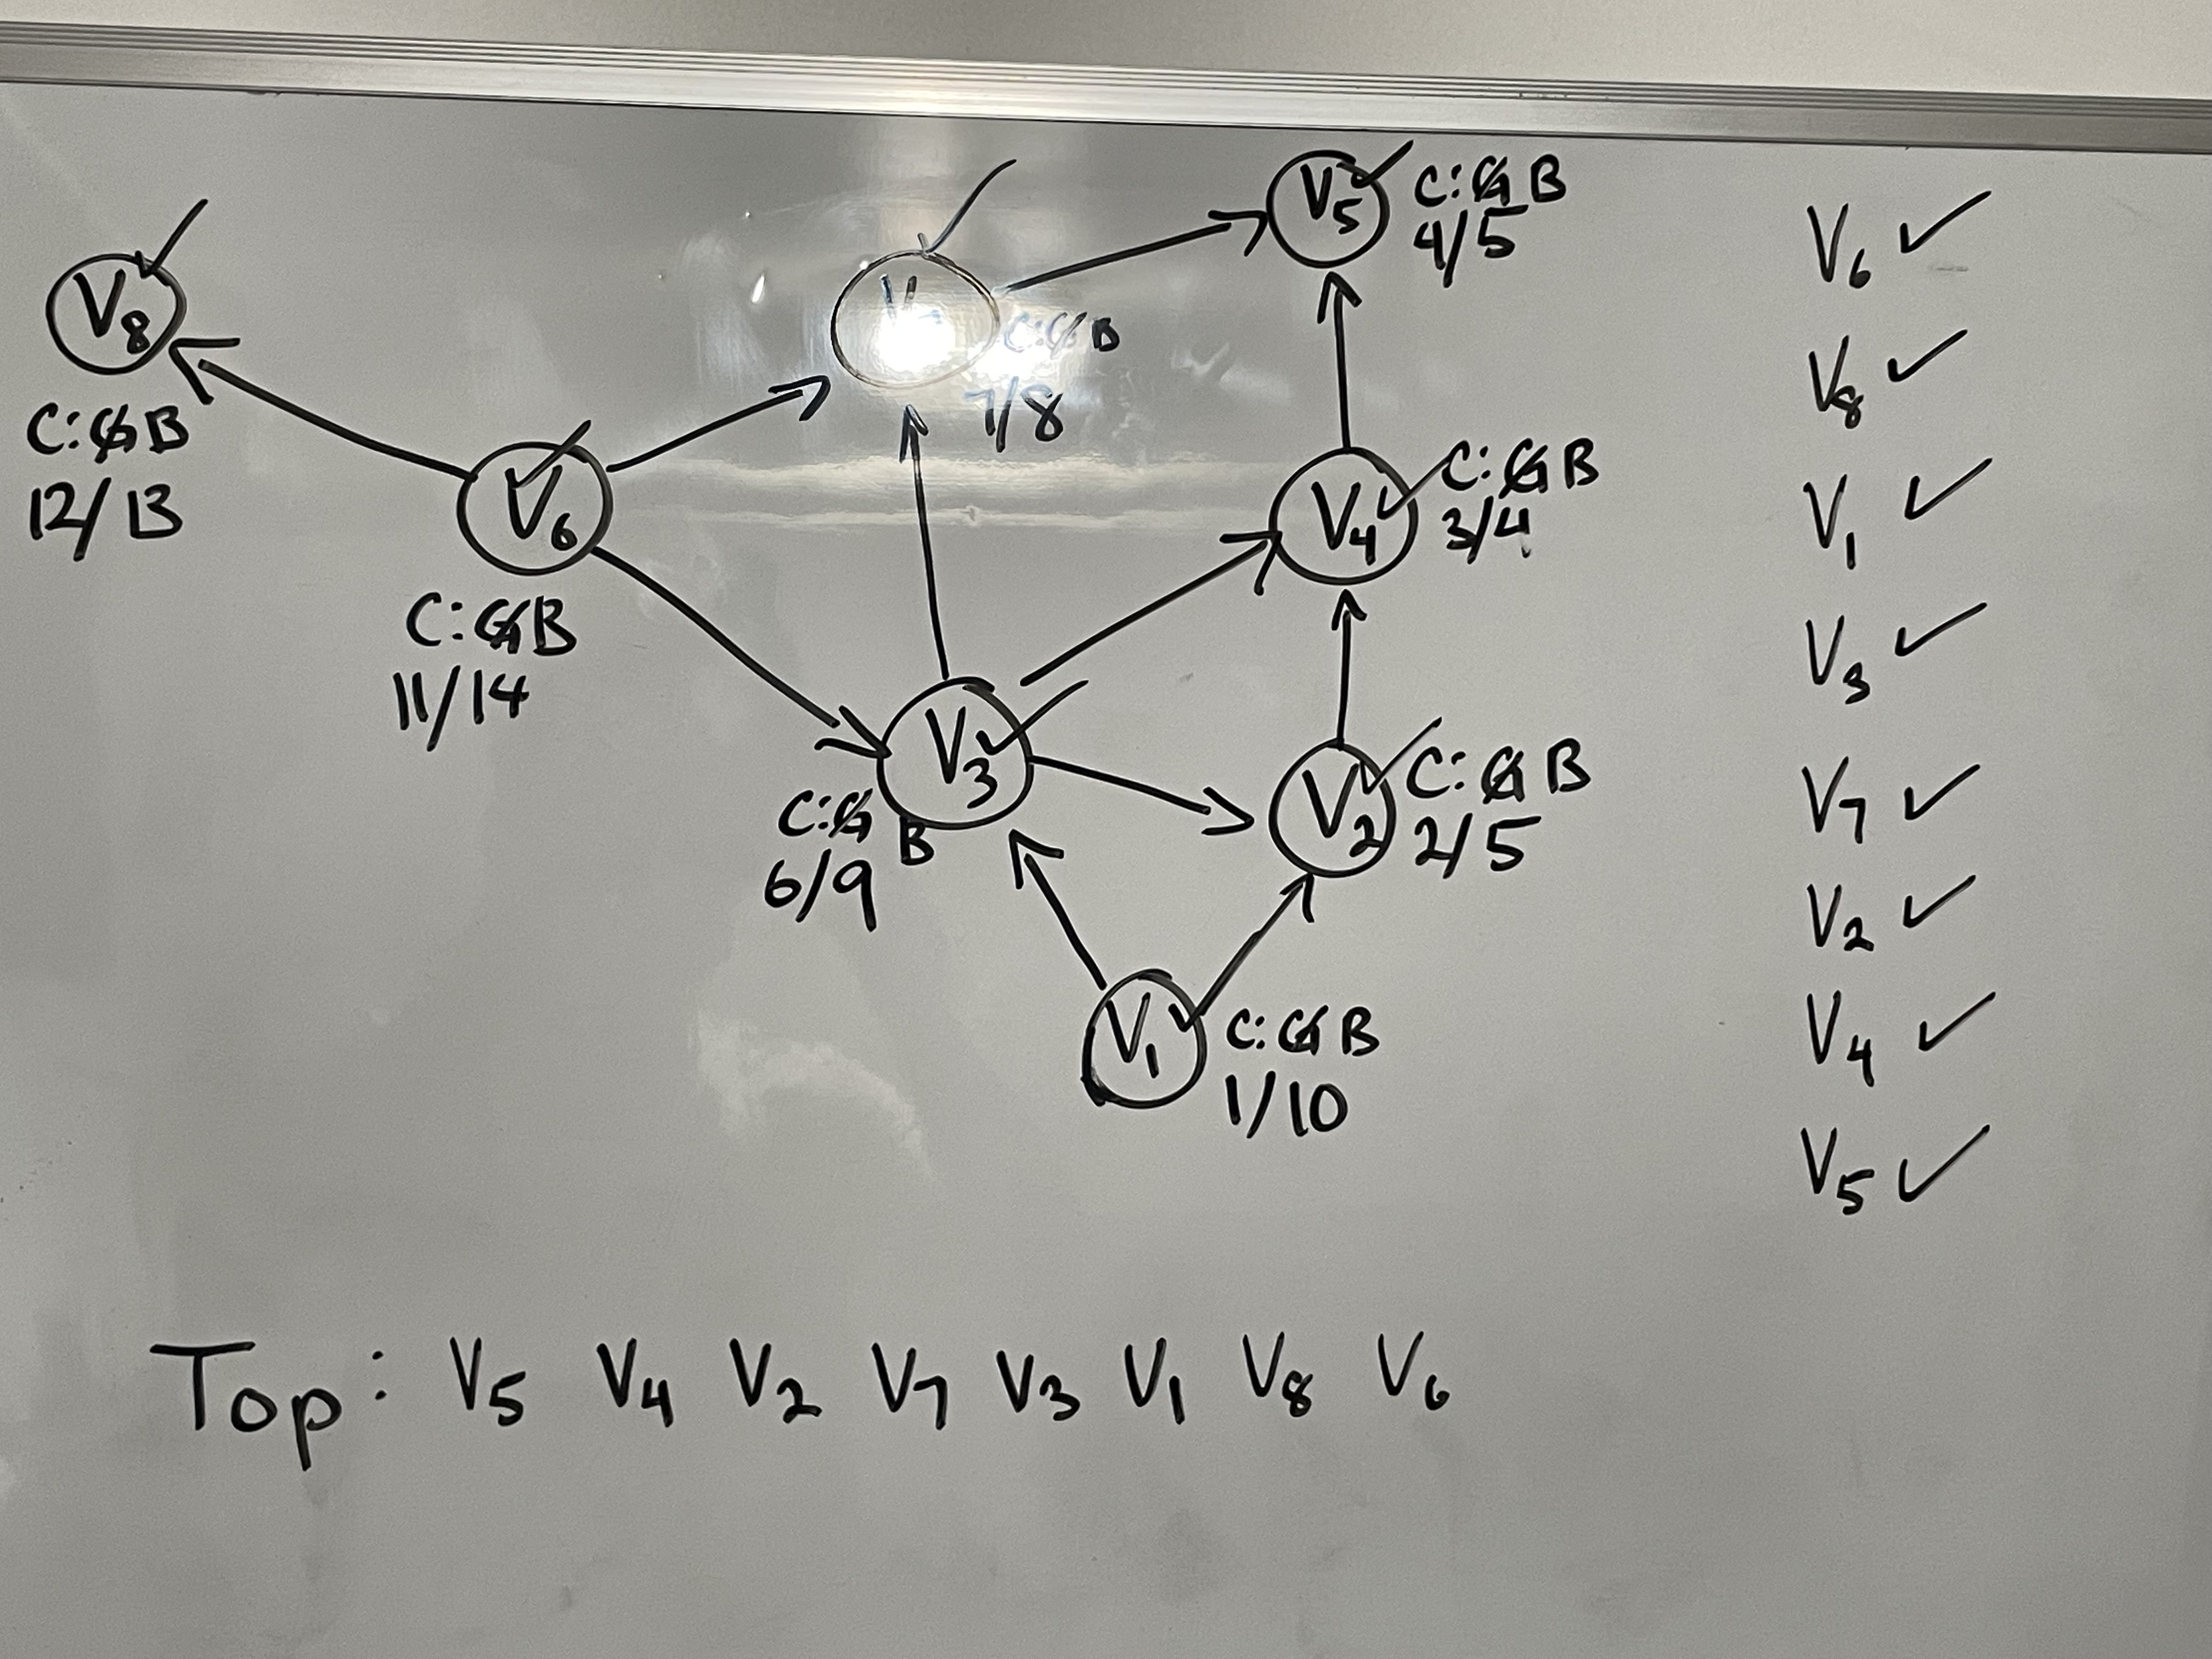 V5 C:G B
4/5
V8
C:G B
12/13
C:G B
7/8
V6
C:G B
11/14
V4 C:G B
3/4
V3
C:G B
6/9
V2 C:G B
2/5
V1 C:G B
1/10
V6 ✓
V8 ✓
V1 ✓
V3 ✓
V7 ✓
V2 ✓
V4 ✓
V5 ✓
Top: V5 V4 V2 V7 V3 V1 V8 V6